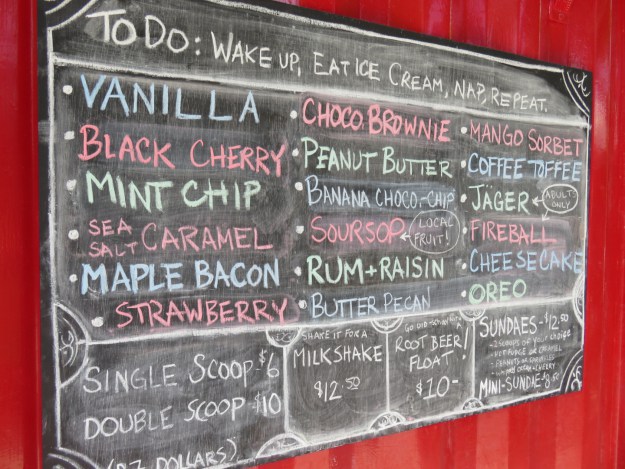 TO DO: WAKE UP, EAT ICE CREAM, NAP, REPEAT.
VANILLA
BLACK CHERRY
MINT CHIP
SEA SALT CARAMEL
MAPLE BACON
STRAWBERRY
CHOCO. BROWNIE
PEANUT BUTTER
BANANA CHOCO.-CHIP
SOURSOP ← LOCAL FRUIT!
RUM + RAISIN
BUTTER PECAN
MANGO SORBET
COFFEE TOFFEE
JÄGER
ADULT ONLY
FIREBALL
CHEESECAKE
OREO
SINGLE SCOOP - $6
DOUBLE SCOOP - $10
DOLLARS)
SHAKE IT FOR A
MILKSHAKE
$12.50
ROOT BEER
FLOAT!
$10-
SUNDAES - $12.50
- 2 SCOOPS OF YOUR CHOICE
- HOT FUDGE OR CARAMEL
MINI-SUNDAE $8.50